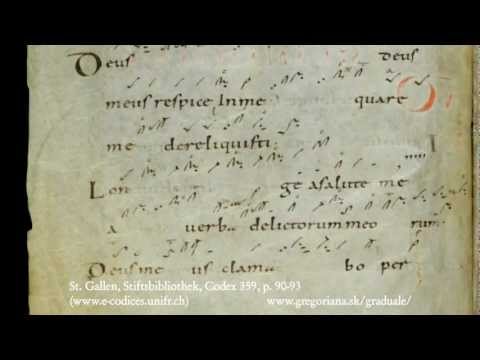 Deus deus
meus respice Inme quare
me dereliquisti
Lon ge asalute me
a verba delictorum meo rum
Deus me us clama bo per
St. Gallen, Stiftsbibliothek, Codex 359, p. 90-93
(www.e-codices.unifr.ch) www.gregoriana.sk/graduale/